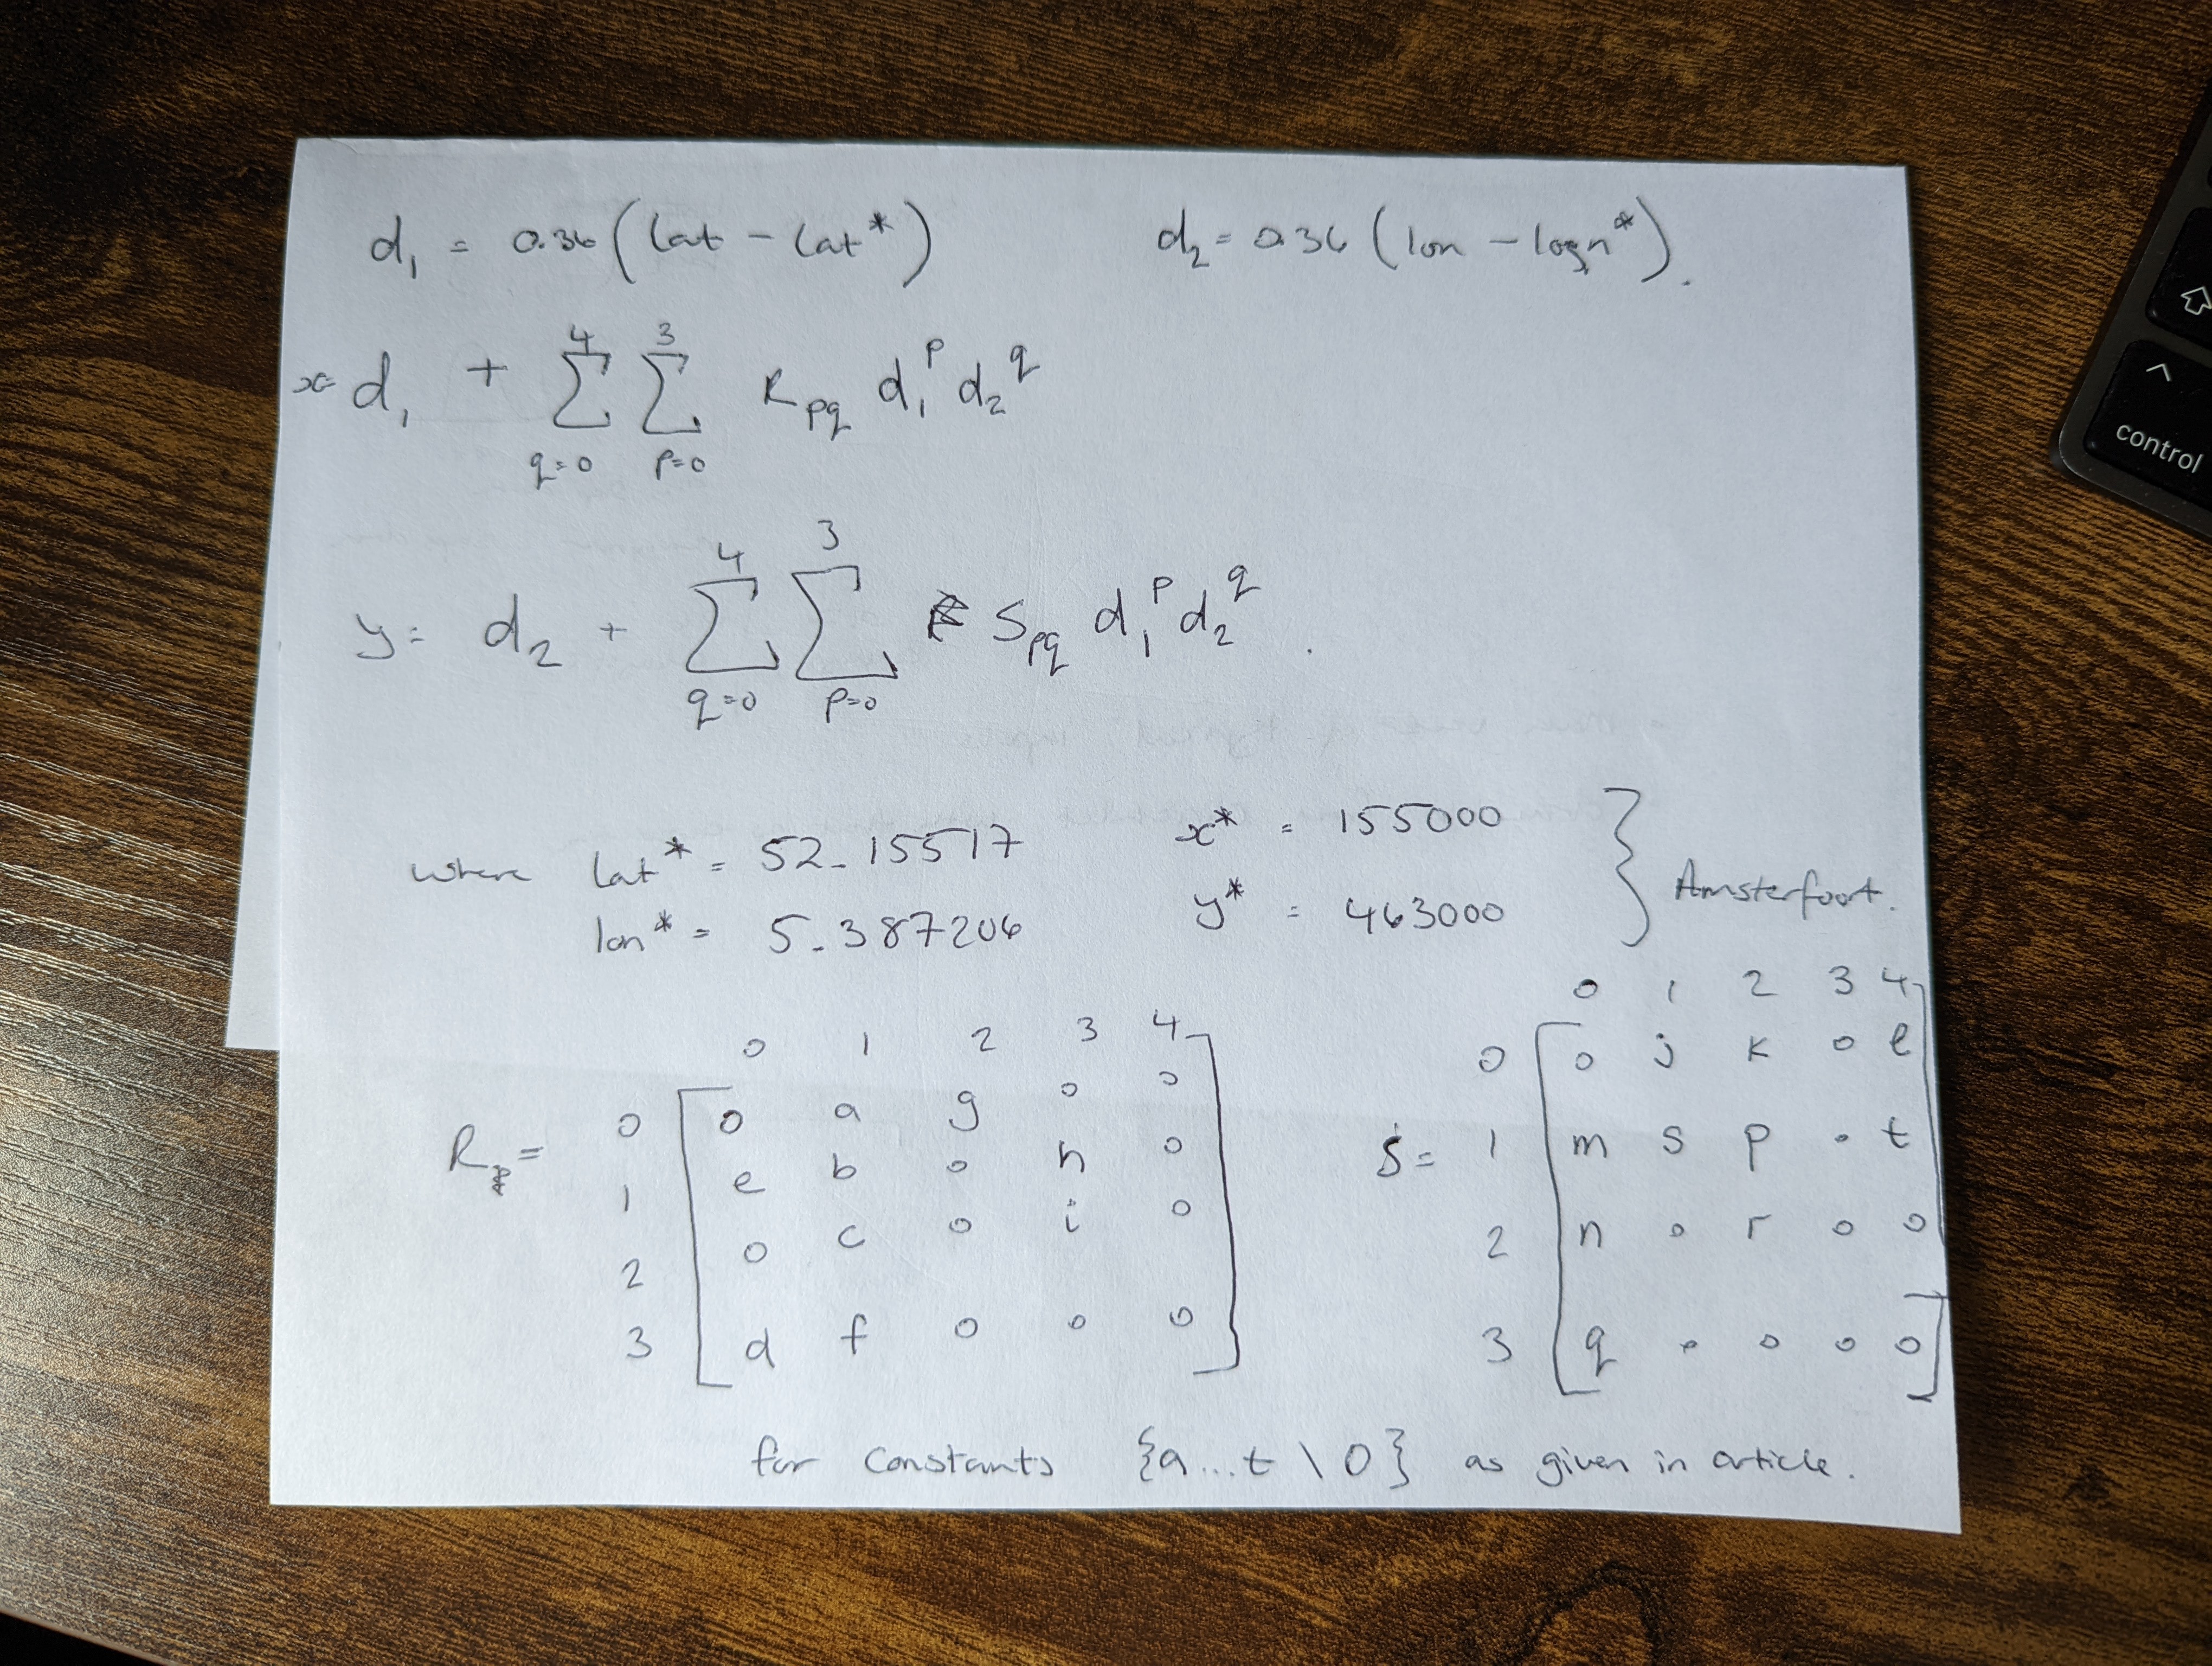 d₁ = 0.36 (lat - lat*) d₂ = 0.36 (lon - logn*).
x= d₁ + ∑_{q=0}^{4} ∑_{p=0}^{3} R_{pq} d₁^p d₂^q
y= d₂ + ∑_{q=0}^{4} ∑_{p=0}^{3} S_{pq} d₁^p d₂^q .
where lat* = 52.15517 x* = 155000
lon* = 5.387206 y* = 463000 } Amsterfoort.
0 1 2 3 4
R = 0 [ 0 a g 0 0
1 e b 0 h 0
2 0 c 0 i 0
3 d f 0 0 0 ]
0 1 2 3 4
S = 0 [ 0 j k 0 l
1 m s p 0 t
2 n 0 r 0 0
3 q 0 0 0 0 ]
for constants {a...t \ 0} as given in article.
control